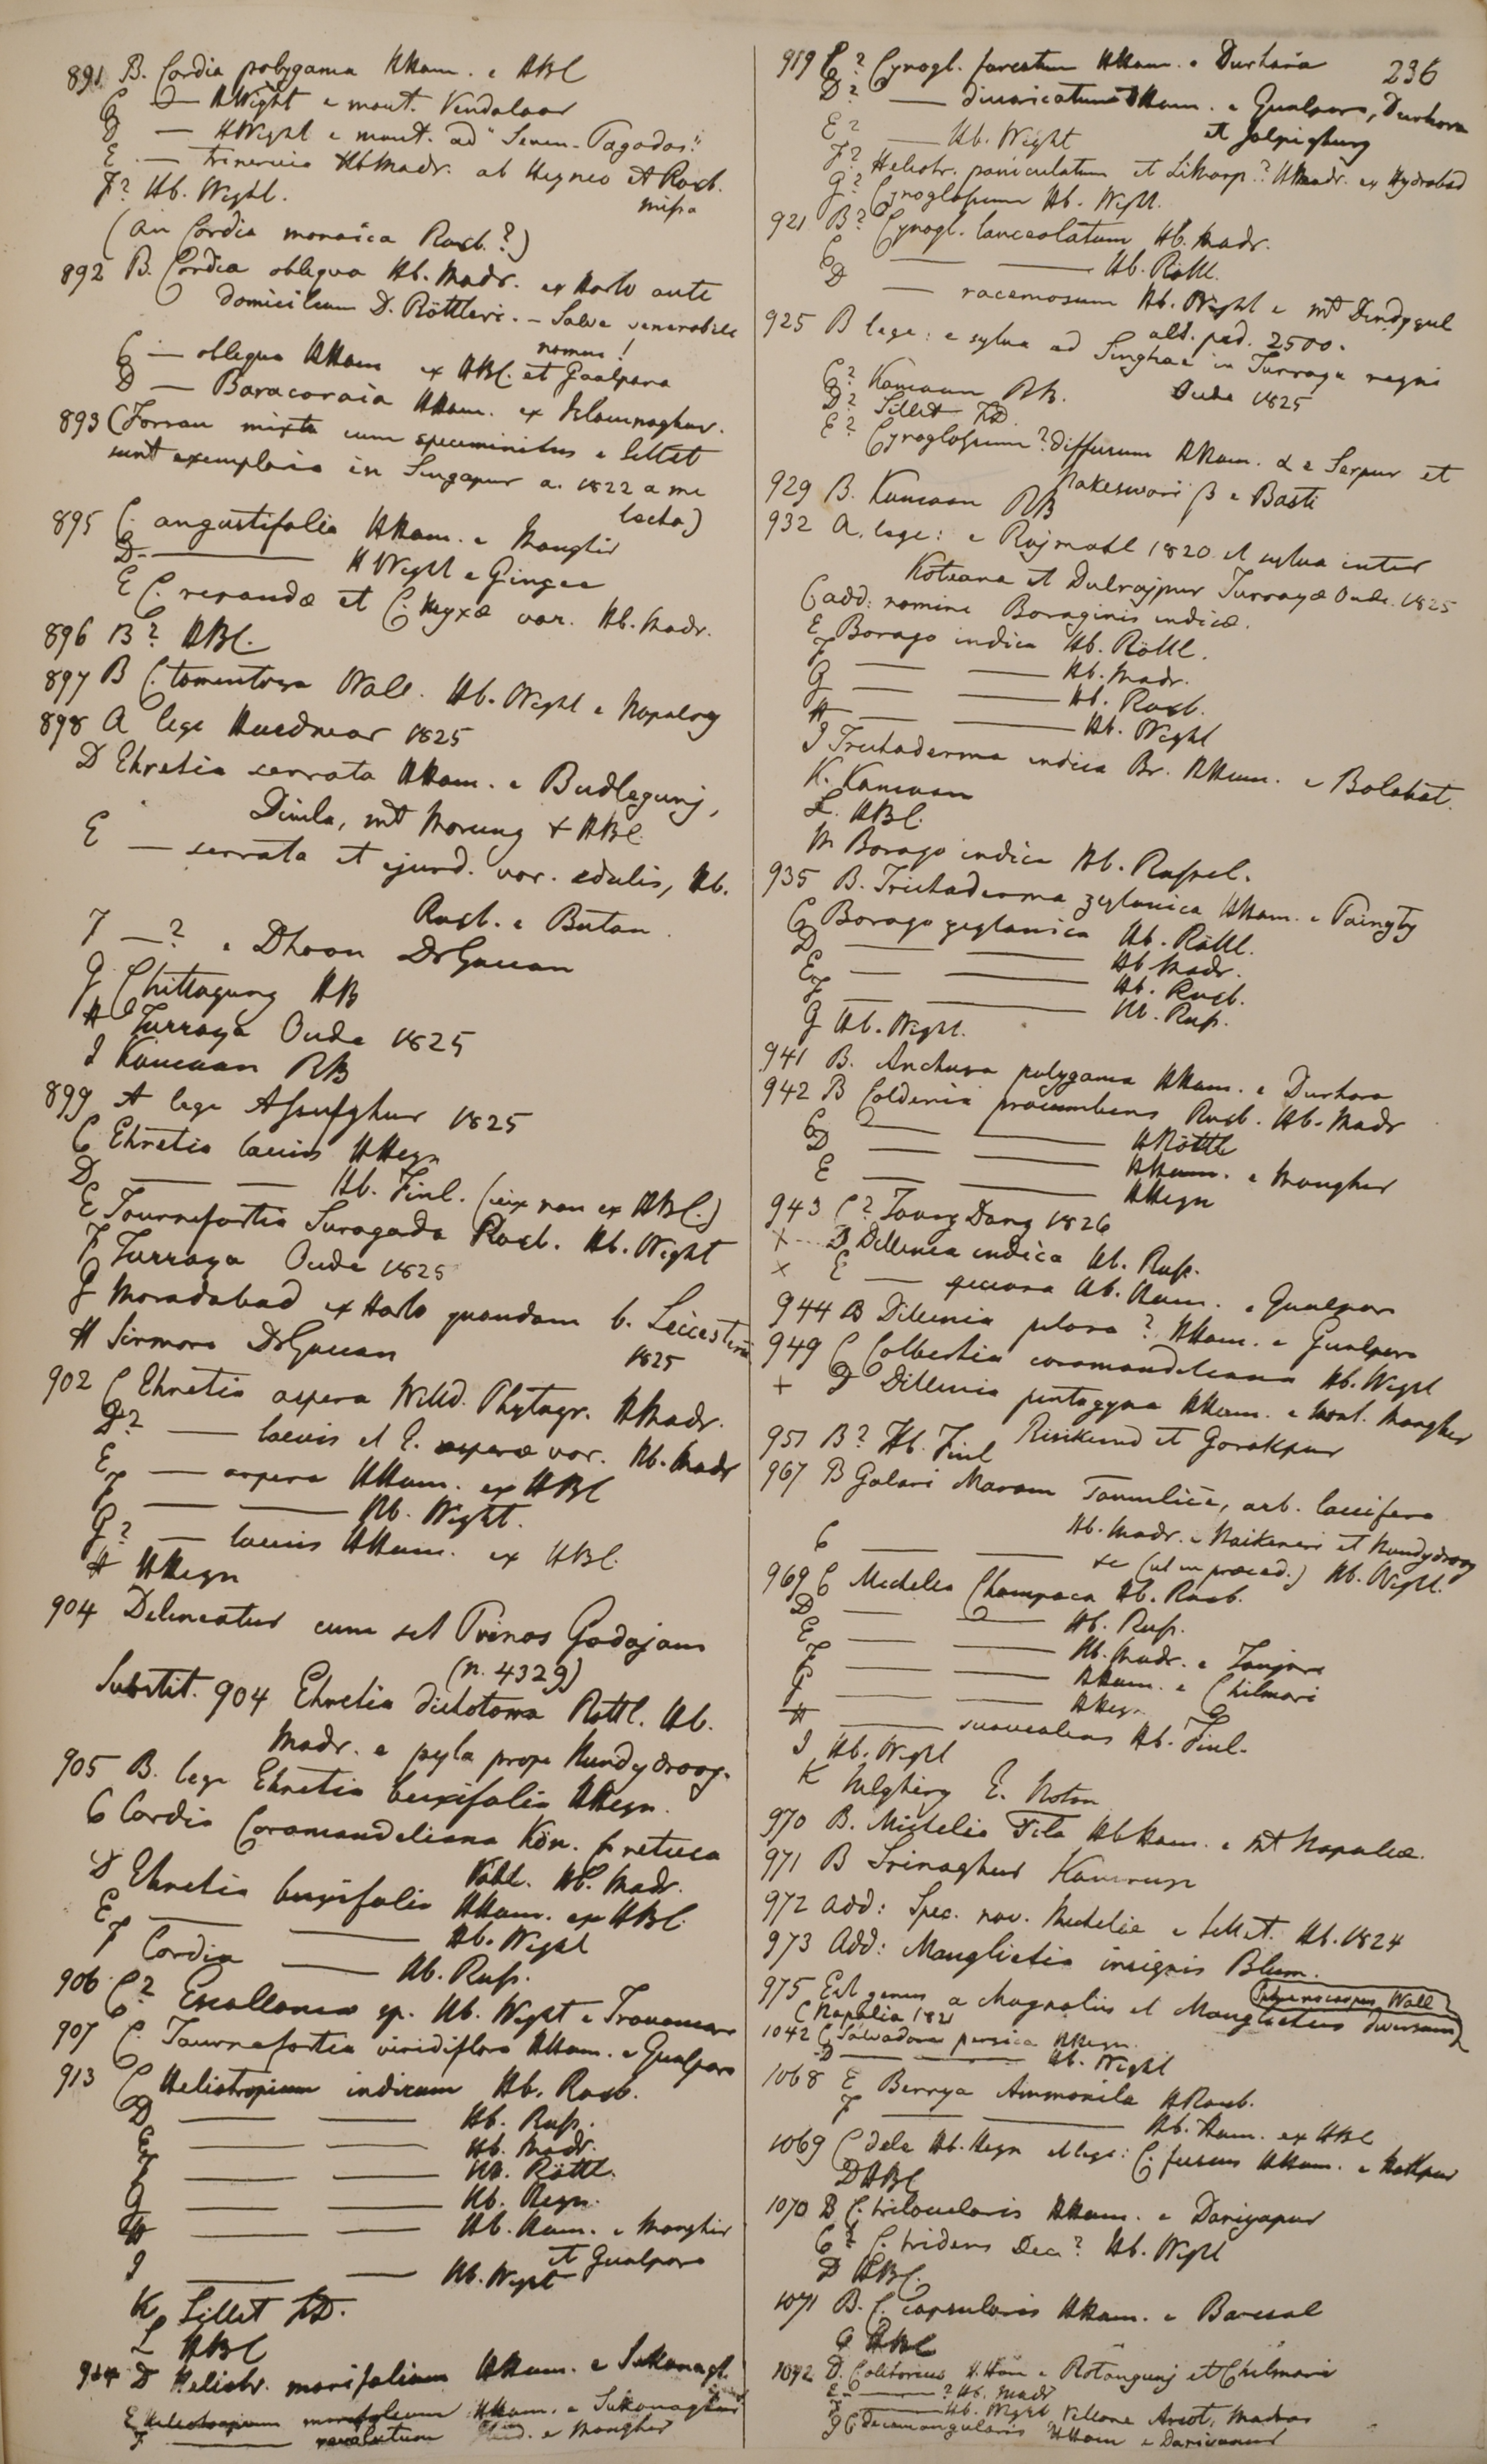 236
891 B. Cordia polygama HHam. e HBC
C — HWight e mont. Vendaloor
D — HWight e mont. ad "Seven-Pagodas."
E — trinervia HbMadr. ab Heyneo et Roxb.
missa
F? Hb. Wight.
(an Cordia monoica Roxb.?)
892 B. Cordia obliqua Hb. Madr. ex Horto ante
domicilium D. Röttleri. — Salve venerabile
nomen!
C — obliqua HHam ex HBC. et Goalpara
D — HHam. ex
893 (Forsan mixta cum speciminibus e Sillet
sunt exemplaria in Singapur a. 1822 a me
lecta)
895 C. angustifolia HHam. e Monghir
D. — HWight e Gingee
E C. reranda et C. var. Hb. Madr.
896 B? HBC.
897 B C. tomentosa Wall. Hb. Wight e
898 A lege Hurdwar 1825
D Ehretia serrata HHam. e Budlegunj,
mt Morung & HBC
E — serrata et ejusd. var. edulis, Hb.
Roxb. e Butan
F —? e Dhoon DrGovan
G Chittagung HB
H Turraya Oude 1825
I Kamaon RB
899 A lege Assufghur 1825
C Ehretia laevis HHeyn
D — — Hb. Finl. (vix non ex HBC.)
E Tournefortia Roxb. Hb. Wight
F Turraya Oude 1825
G Moradabad ex Horto quondam b.
1825
H Sirmore DrGovan
902 C Ehretia aspera Willd. Phytogr. HMadr.
D? — laevis et E. aspera var. Hb. Madr
E — aspera HHam. ex HBC
F — — Hb. Wight.
G? — laevis HHam. ex HBC.
H HHeyn
904 Delineatur cum sel Prinos Godajam
(n. 4329)
Substit. 904 Ehretia dichotoma Rottl. Hb.
Madr. e sylva prope Nundydroog.
905 B. lege Ehretia buxifolia HHeyn.
C Cordia Coromandeliana Kön. C. retusa
Vahl. Hb. Madr.
D Ehretia buxifolia HHam. ex HBC.
E — — Hb. Wight
F Cordia — Hb. Russ.
906 C? Escallonia sp. Hb. Wight e Travancor
907 C. Tournefortia viridiflora HHam. e Gualpara
913 C Heliotropium indicum Hb. Roxb.
D — — Hb. Russ.
E — — Hb. Madr.
F — — Hb. Röttl.
G — — Hb. Heyn.
H — — Hb. Ham. e Monghir
et Gualpara
I — — Hb. Wight
K Sillet FD.
L HBC
914 D Heliotr. HHam. e
E Heliotropium HHam. e
F — revolutum e Mongher
919 C? Cynogl. furcatum HHam. e Durhara
D? — divaricatum HHam. e Gualpara, Durhara
et Jalpighury
E? — Hb. Wight
F? Heliotr. paniculatum et Lithosp.? HMadr. ex Hydrabad
G? Cynoglossum Hb. Wight.
921 B? Cynogl. lanceolatum Hb. Madr.
C — — Hb. Röttl.
D — racemosum Hb. Wight e mt Dindygul
alt. ped. 2500.
925 B lege: e sylva ad Singhae in Turraya regni
Oude 1825
C? Kamaon RB.
D? Sillet FD.
E? Cynoglossum? diffusum HHam. α e Serpur et
Nakeswari β e Basti
929 B. Kamaon RB
932 A. lege: e Rajmahl 1820 et sylva inter
Koteana et Dulrajpur Turraya Oude. 1825
C add: nomine Boraginis indicae.
E Borago indica Hb. Röttl.
F — — Hb. Madr.
G — — Hb. Roxb.
H — — Hb. Wight
I Trichoderma indica Br. HHam. e
K. Kamaon
L. HBC.
M Borago indica Hb. Russel.
935 B. Trichoderma zeylanica HHam. e
C Borago zeylanica Hb. Röttl.
D — — Hb Madr.
E — — Hb. Roxb.
F — — Hb. Russ.
G Hb. Wight.
941 B. Anchusa polygama HHam. e Durhara
942 B Coldenia procumbens Roxb. Hb. Madr
C — — HRöttl
D — — HHam. e Mongher
E — — HHeyn
943 C? Taong Dong 1826
× D Dillenia indica Hb. Russ.
× E — speciosa Hb. Ham. e Gualpara
944 B Dillenia pilosa? HHam. e Gualpara
949 C Colbertia coromandeliana Hb. Wight
+ D Dillenia pentagyna HHam. e mont. Mongher
Risikund et Gorakpur
951 B? Hb. Finl
967 B Golari Maram Tamulice, arb. laccifera
Hb. Madr. e Naikeneri et Nundydroog
C — — &c (ut in praeced.) Hb. Wight.
969 C Michelia Champaca Hb. Roxb.
D — — Hb. Russ.
E — — Hb. Madr. e Tanjore
F — — HHam. e Chilmari
G — — HHeyn.
H — suaveolens Hb. Finl.
I Hb. Wight
K Nelghiry E. Noton
970 B. Michelia Tila HbHam. e mt Napaliae.
971 B Srinaghur Kamrup
972 add: Spec. nov. Micheliae e Sillet. Hb. 1824
973 Add: Manglietia insignis Blum.
975 Est genus a Magnoliis et Manglietiis diversum
Wall
C Napalia 1821
1042 C Salvadora persica HHeyn.
D — — Hb. Wight
1068 E Berrya Ammonila HRoxb.
F — — Hb. Ham. ex HBC
1069 C dele Hb. Heyn et lege: C. fuscus HHam. e Nathpur
D HBC
1070 B C. trilocularis HHam. e Dariyapur
C? C. tridens Dec? Hb. Wight
D HBC.
1071 B. C. capsularis HHam. e
C HBC
1072 D. C. olitorius H. Ham e Rotangunj et Chilmari
E — ? Hb. Madr
F — Hb. Wight Vellore Arcot, Madras
G C decemangularis HHam e